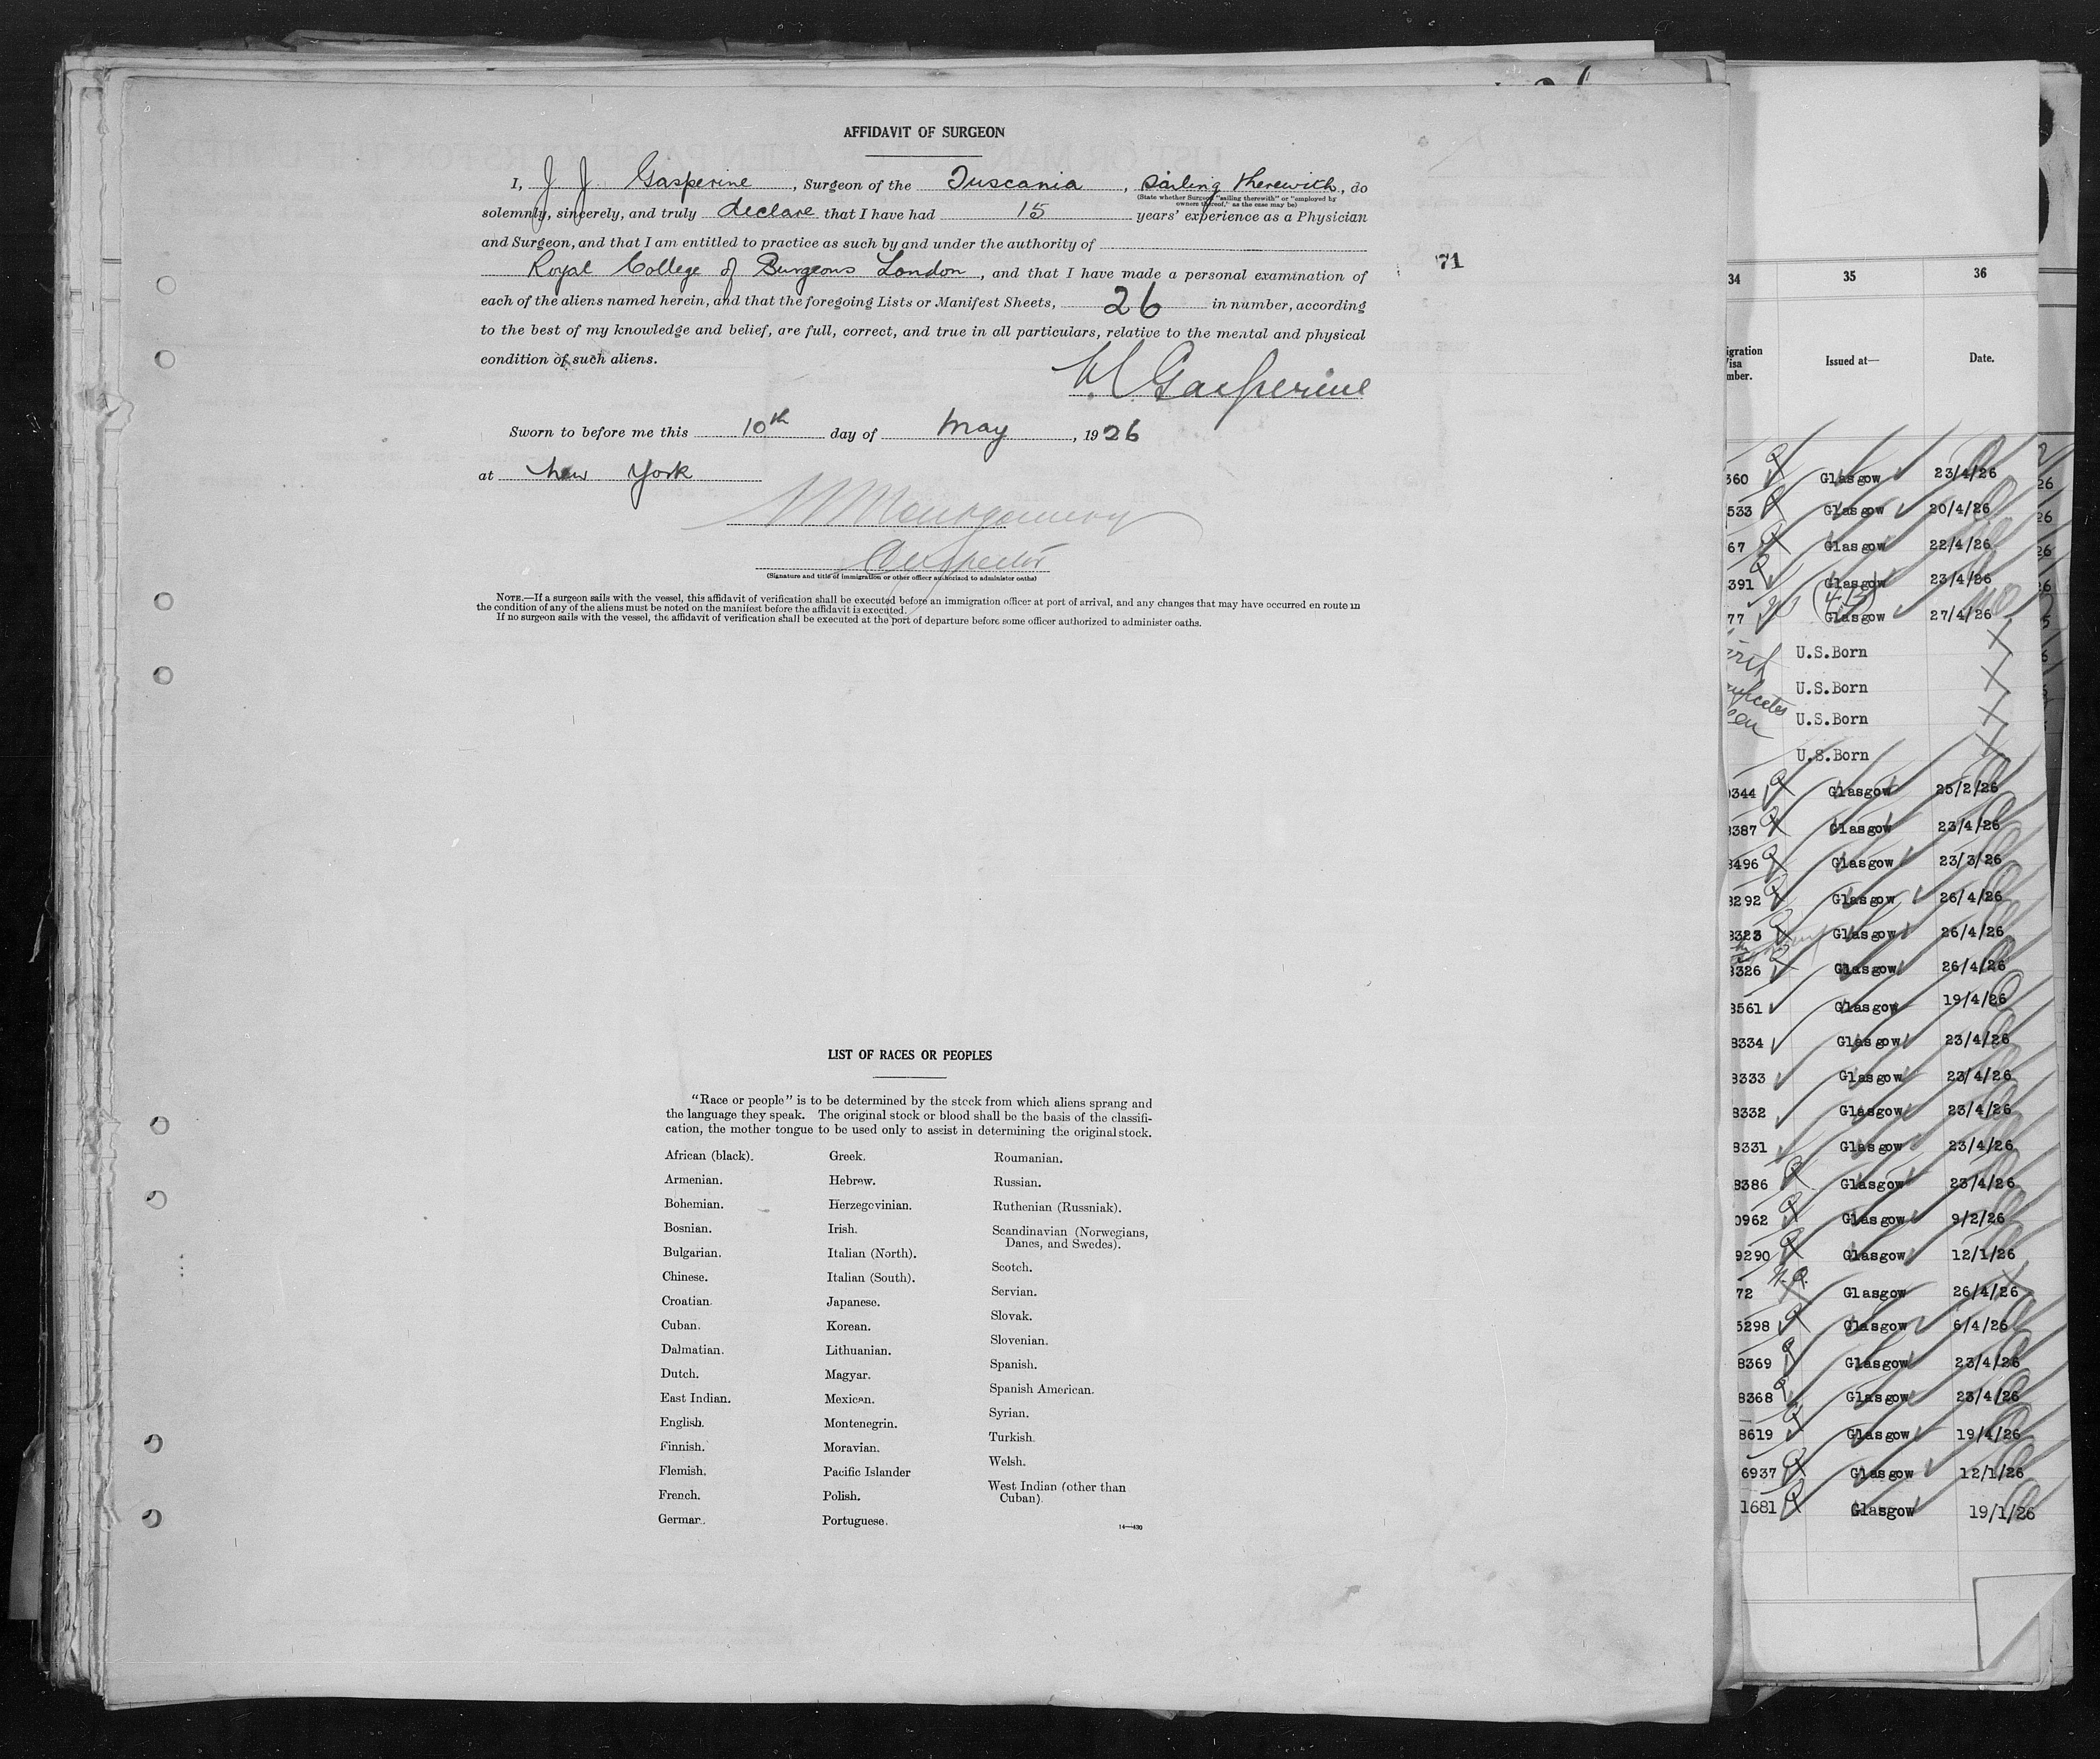 AFFIDAVIT OF SURGEON
I, J J Gasperine, Surgeon of the Tuscania, sailing therewith, do
(State whether Surgeon "sailing therewith" or "employed by
owners thereof," as the case may be)
solemnly, sincerely, and truly declare that I have had 15 years' experience as a Physician
and Surgeon, and that I am entitled to practice as such by and under the authority of
Royal College of Surgeons London, and that I have made a personal examination of
71
each of the aliens named herein, and that the foregoing Lists or Manifest Sheets, 26 in number, according
to the best of my knowledge and belief, are full, correct, and true in all particulars, relative to the mental and physical
condition of such aliens.
Gasperine
Sworn to before me this 10th day of May, 1926
at New York
Montgomery
Inspector
(Signature and title of immigration or other officer authorized to administer oaths)
NOTE.—If a surgeon sails with the vessel, this affidavit of verification shall be executed before an immigration officer at port of arrival, and any changes that may have occurred en route in
the condition of any of the aliens must be noted on the manifest before the affidavit is executed.
If no surgeon sails with the vessel, the affidavit of verification shall be executed at the port of departure before some officer authorized to administer oaths.
LIST OF RACES OR PEOPLES
"Race or people" is to be determined by the stock from which aliens sprang and
the language they speak. The original stock or blood shall be the basis of the classifi-
cation, the mother tongue to be used only to assist in determining the original stock.
African (black).
Armenian.
Bohemian.
Bosnian.
Bulgarian.
Chinese.
Croatian.
Cuban.
Dalmatian.
Dutch.
East Indian.
English.
Finnish.
Flemish.
French.
German.
Greek.
Hebrew.
Herzegovinian.
Irish.
Italian (North).
Italian (South).
Japanese.
Korean.
Lithuanian.
Magyar.
Mexican.
Montenegrin.
Moravian.
Pacific Islander
Polish.
Portuguese.
Roumanian.
Russian.
Ruthenian (Russniak).
Scandinavian (Norwegians,
Danes, and Swedes).
Scotch.
Servian.
Slovak.
Slovenian.
Spanish.
Spanish American.
Syrian.
Turkish.
Welsh.
West Indian (other than
Cuban).
14—430
34 35 36
igration
isa
mber. Issued at— Date.
360 Glasgow 23/4/26
533 Glasgow 20/4/26
67 Glasgow 22/4/26
391 Glasgow 23/4/26
77 Glasgow 27/4/26
U.S.Born
U.S.Born
U.S.Born
U.S.Born
344 Glasgow 25/2/26
8387 Glasgow 23/4/26
8496 Glasgow 23/3/26
8292 Glasgow 26/4/26
8323 Glasgow 26/4/26
8326 Glasgow 26/4/26
8561 Glasgow 19/4/26
8334 Glasgow 23/4/26
8333 Glasgow 23/4/26
8332 Glasgow 23/4/26
8331 Glasgow 23/4/26
8386 Glasgow 23/4/26
0962 Glasgow 9/2/26
9290 Glasgow 12/1/26
72 Glasgow 26/4/26
5298 Glasgow 6/4/26
8369 Glasgow 23/4/26
8368 Glasgow 23/4/26
8619 Glasgow 19/4/26
6937 Glasgow 12/1/26
1681 Glasgow 19/1/26